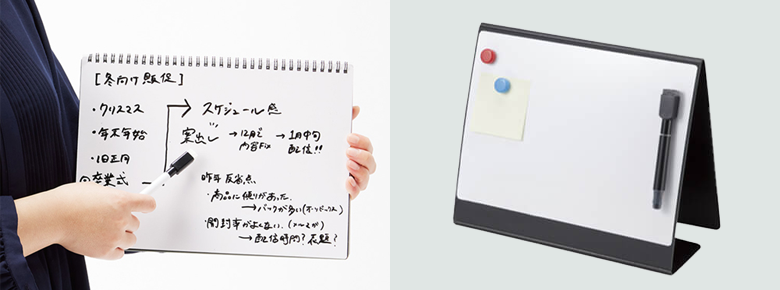 [冬向け販促]
・クリスマス
・年末年始
・旧正月
卒業式
スケジュール感
案出し → 12月で内容Fix → 1月中旬配信!!
昨年反省点
・商品に偏りがあった。
→バックが多い(ボッ
・開封率がよくない。(メルマガ)
→配信時間?表題?